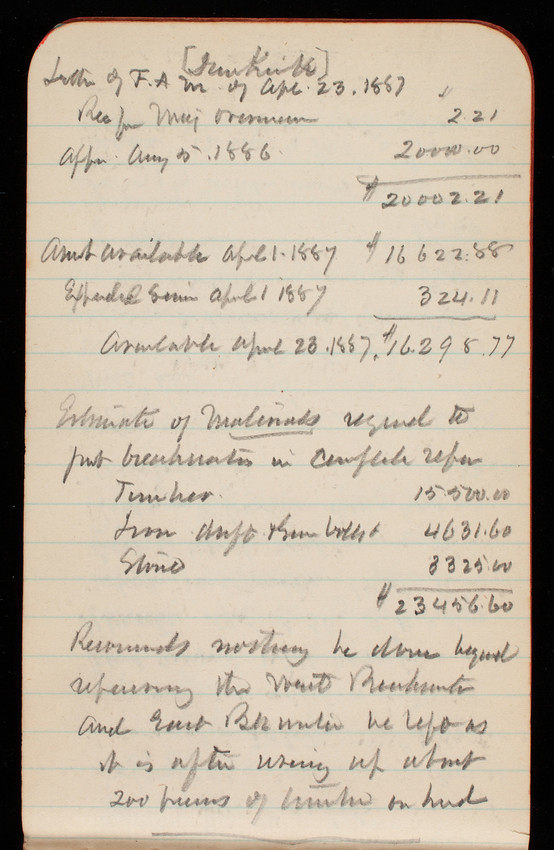 [Dunkirk]
Letter of F.A.M. of Apl. 23, 1887
$
2.21
Appn. Aug 5. 1886 20000.00
$20002.21
Amt available April 1. 1887 $16622.88
Expended since April 1 1887 324.11
Available April 23. 1887, $16.298.77
Estimate of Materials required to
put breakwater in complete repair
Timber. 15500.00
Iron drift & screw bolts 4631.60
Stone 3325.00
$23456.60
Recommends nothing be done beyond
repairing the West Breakwater
and East Bkwater be left as
it is after using up about
200 pieces of timber on hand